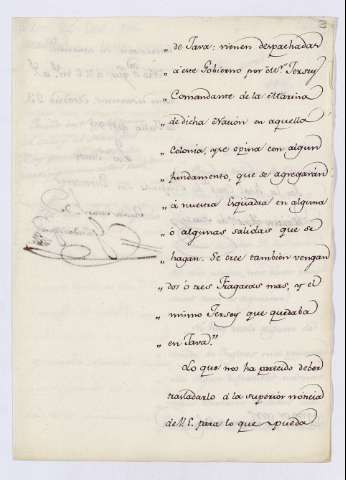 „ de Java: vienen despachadas
„ á este Gobierno por Mr. Jersey
„ Comandante de la Marina
„ de dicha Nacion en aquella
„ Colonia, y se opina con algun
„ fundamento, que se agregarán
„ á nuestra Esquadra en alguna
„ o algunas salidas que se
„ hagan. Se cree tambien vengan
„ dos ó tres Fragatas mas, y el
„ mismo Jersey que quedaba
„ en Java."
Lo que nos ha parecido deber
trasladarlo á la superior noticia
de V.E. para lo que pueda